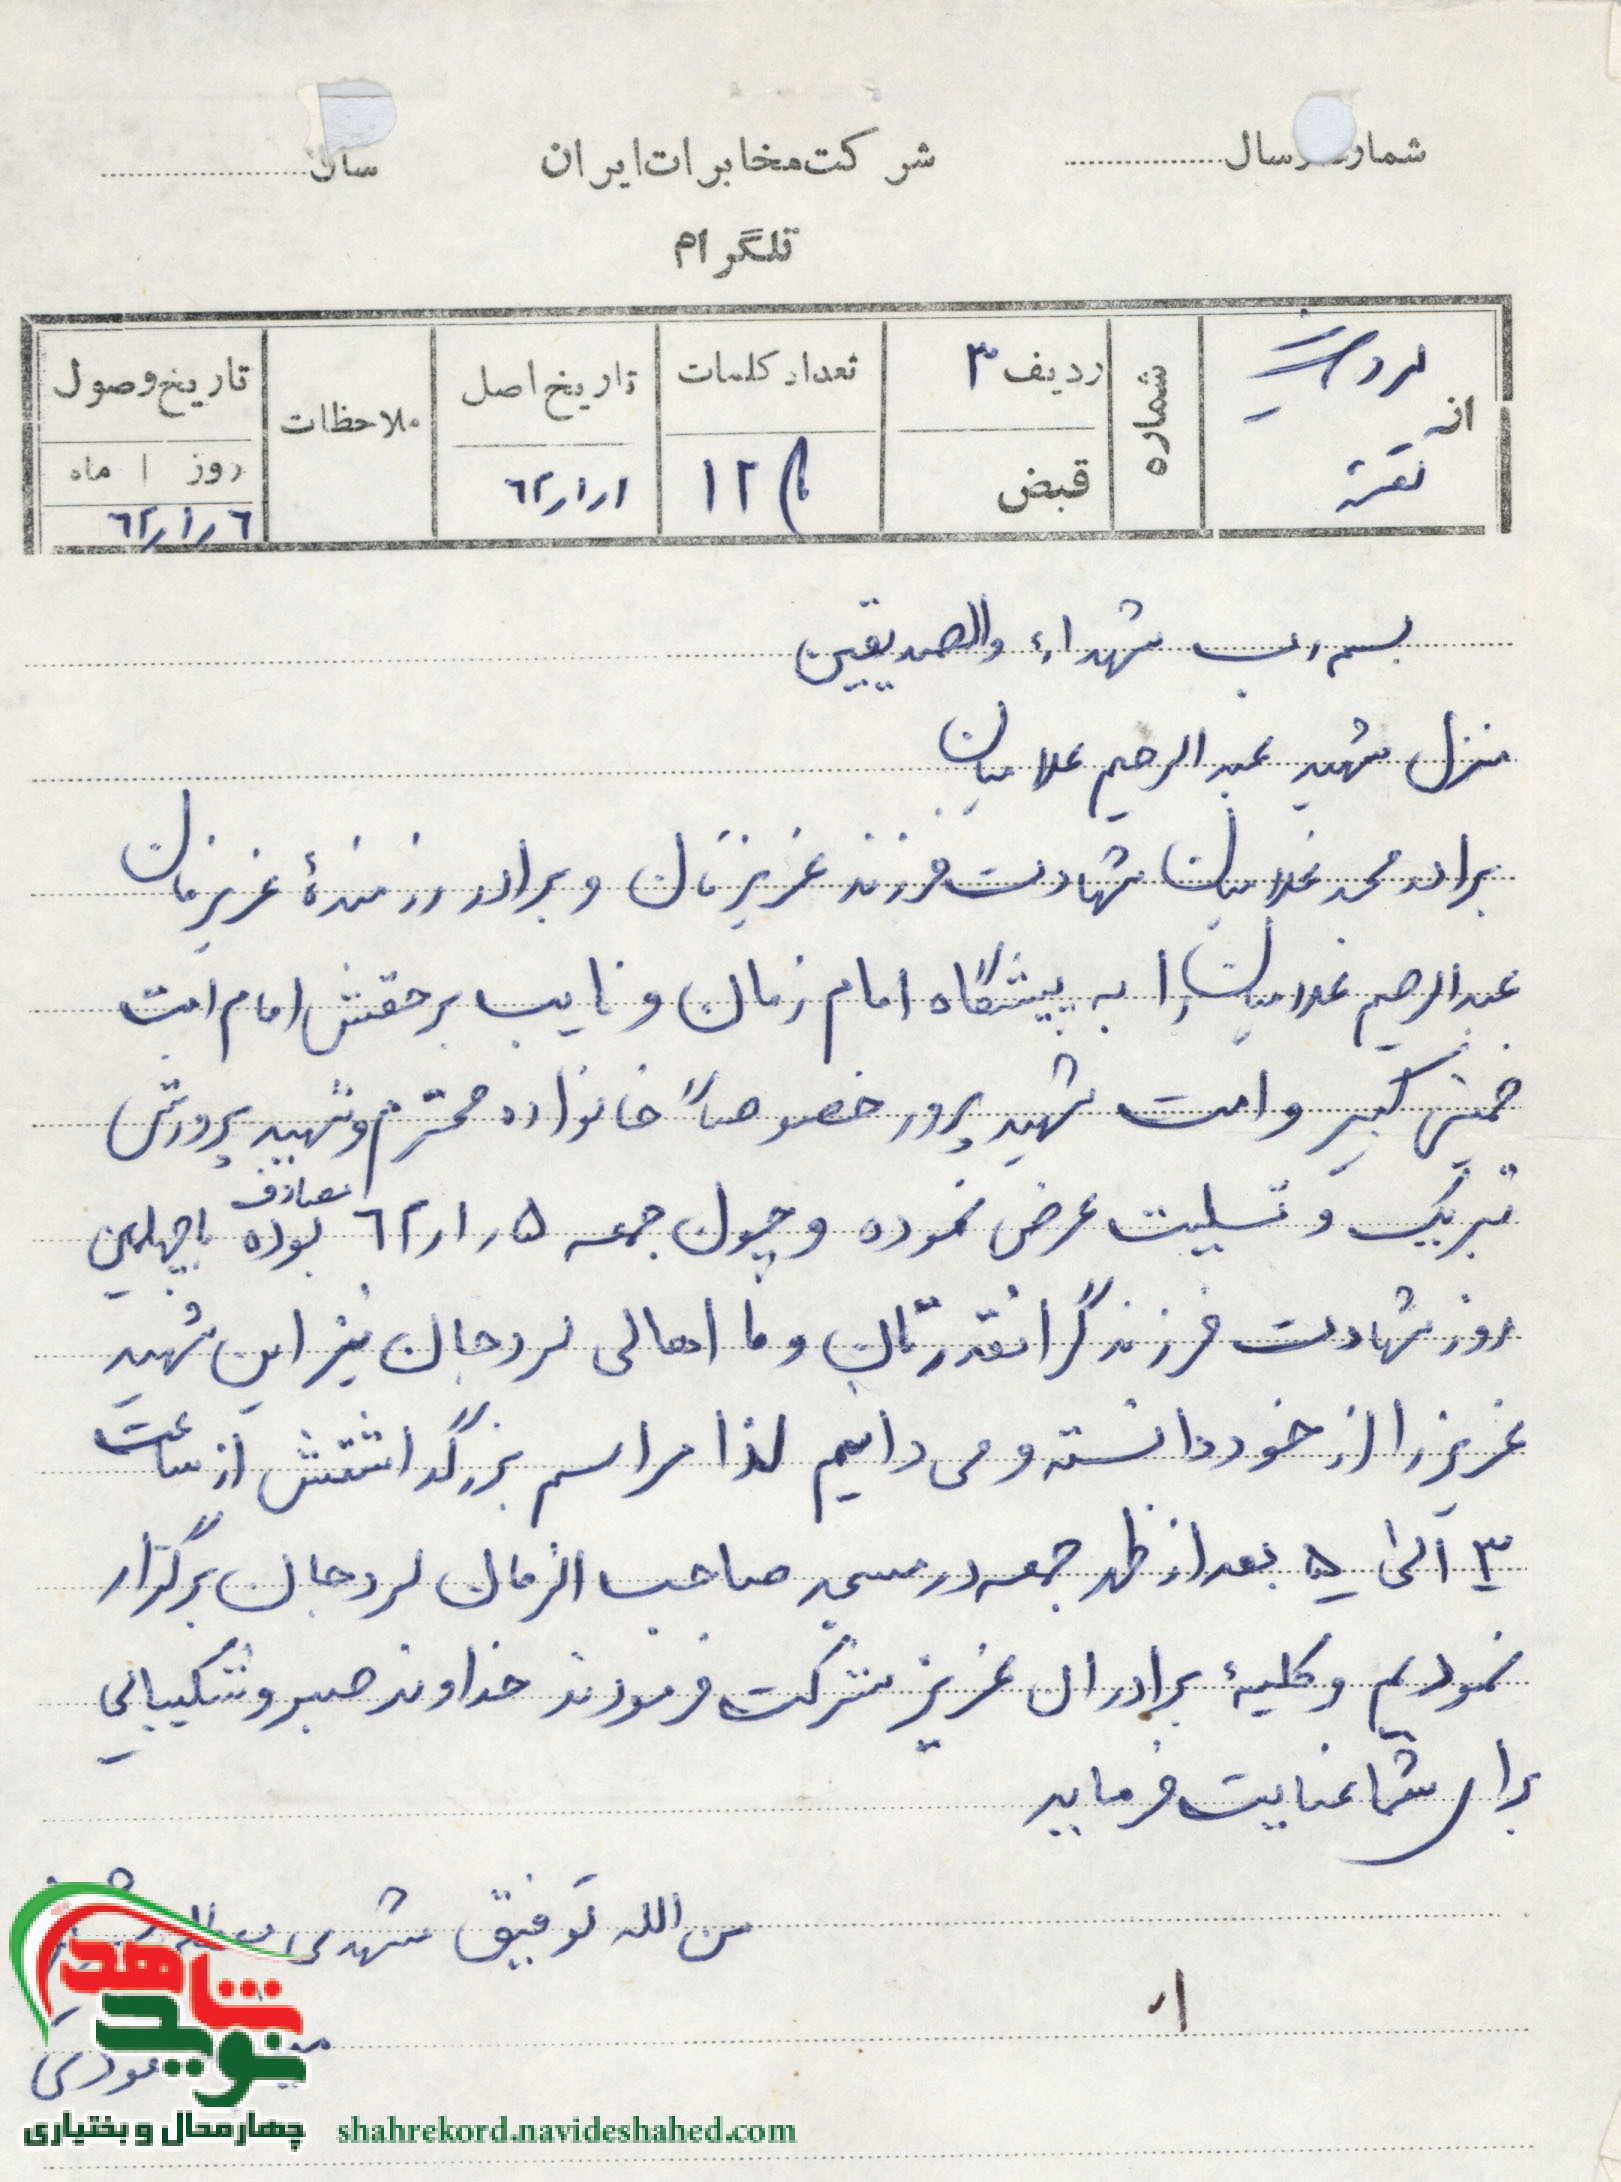 شماره ارسال
شرکت مخابرات ایران
سال
تلگرام
از
شماره
ردیف ۳
قبض
تعداد کلمات
۱۲
تاریخ اصل
۶۲/۱/۱
ملاحظات
تاریخ وصول
روز / ماه
۶۲/۱/۶
بسم رب شهداء والصدیقین
منزل شهید عبدالرحیم غلامیان
برادر محمد غلامیان شهادت فرزند عزیزتان و برادر رزمندهٔ عزیزمان
عبدالرحیم غلامیان را به پیشگاه امام زمان و نایب برحقش امام امت
خمینی کبیر و امت شهید پرور خصوصاً خانواده محترم و شهید پرورش
تبریک و تسلیت عرض نموده و چون جمعه ۶۲/۱/۵ مصادف بوده با چهلمین
روز شهادت فرزند گرانقدرتان و ما اهالی لردجان نیز این شهید
عزیز را از خود دانسته و می دانیم لذا مراسم بزرگداشتش از ساعت
۳ الی ۵ بعد از ظهر جمعه در مسجد صاحب الزمان لردجان برگزار
نمودیم و کلیهٔ برادران عزیز شرکت فرمودند خداوند صبر و شکیبایی
برای شما عنایت فرماید
من الله توفیق
نوید شاهد
چهارمحال و بختیاری
shahrekord.navideshahed.com